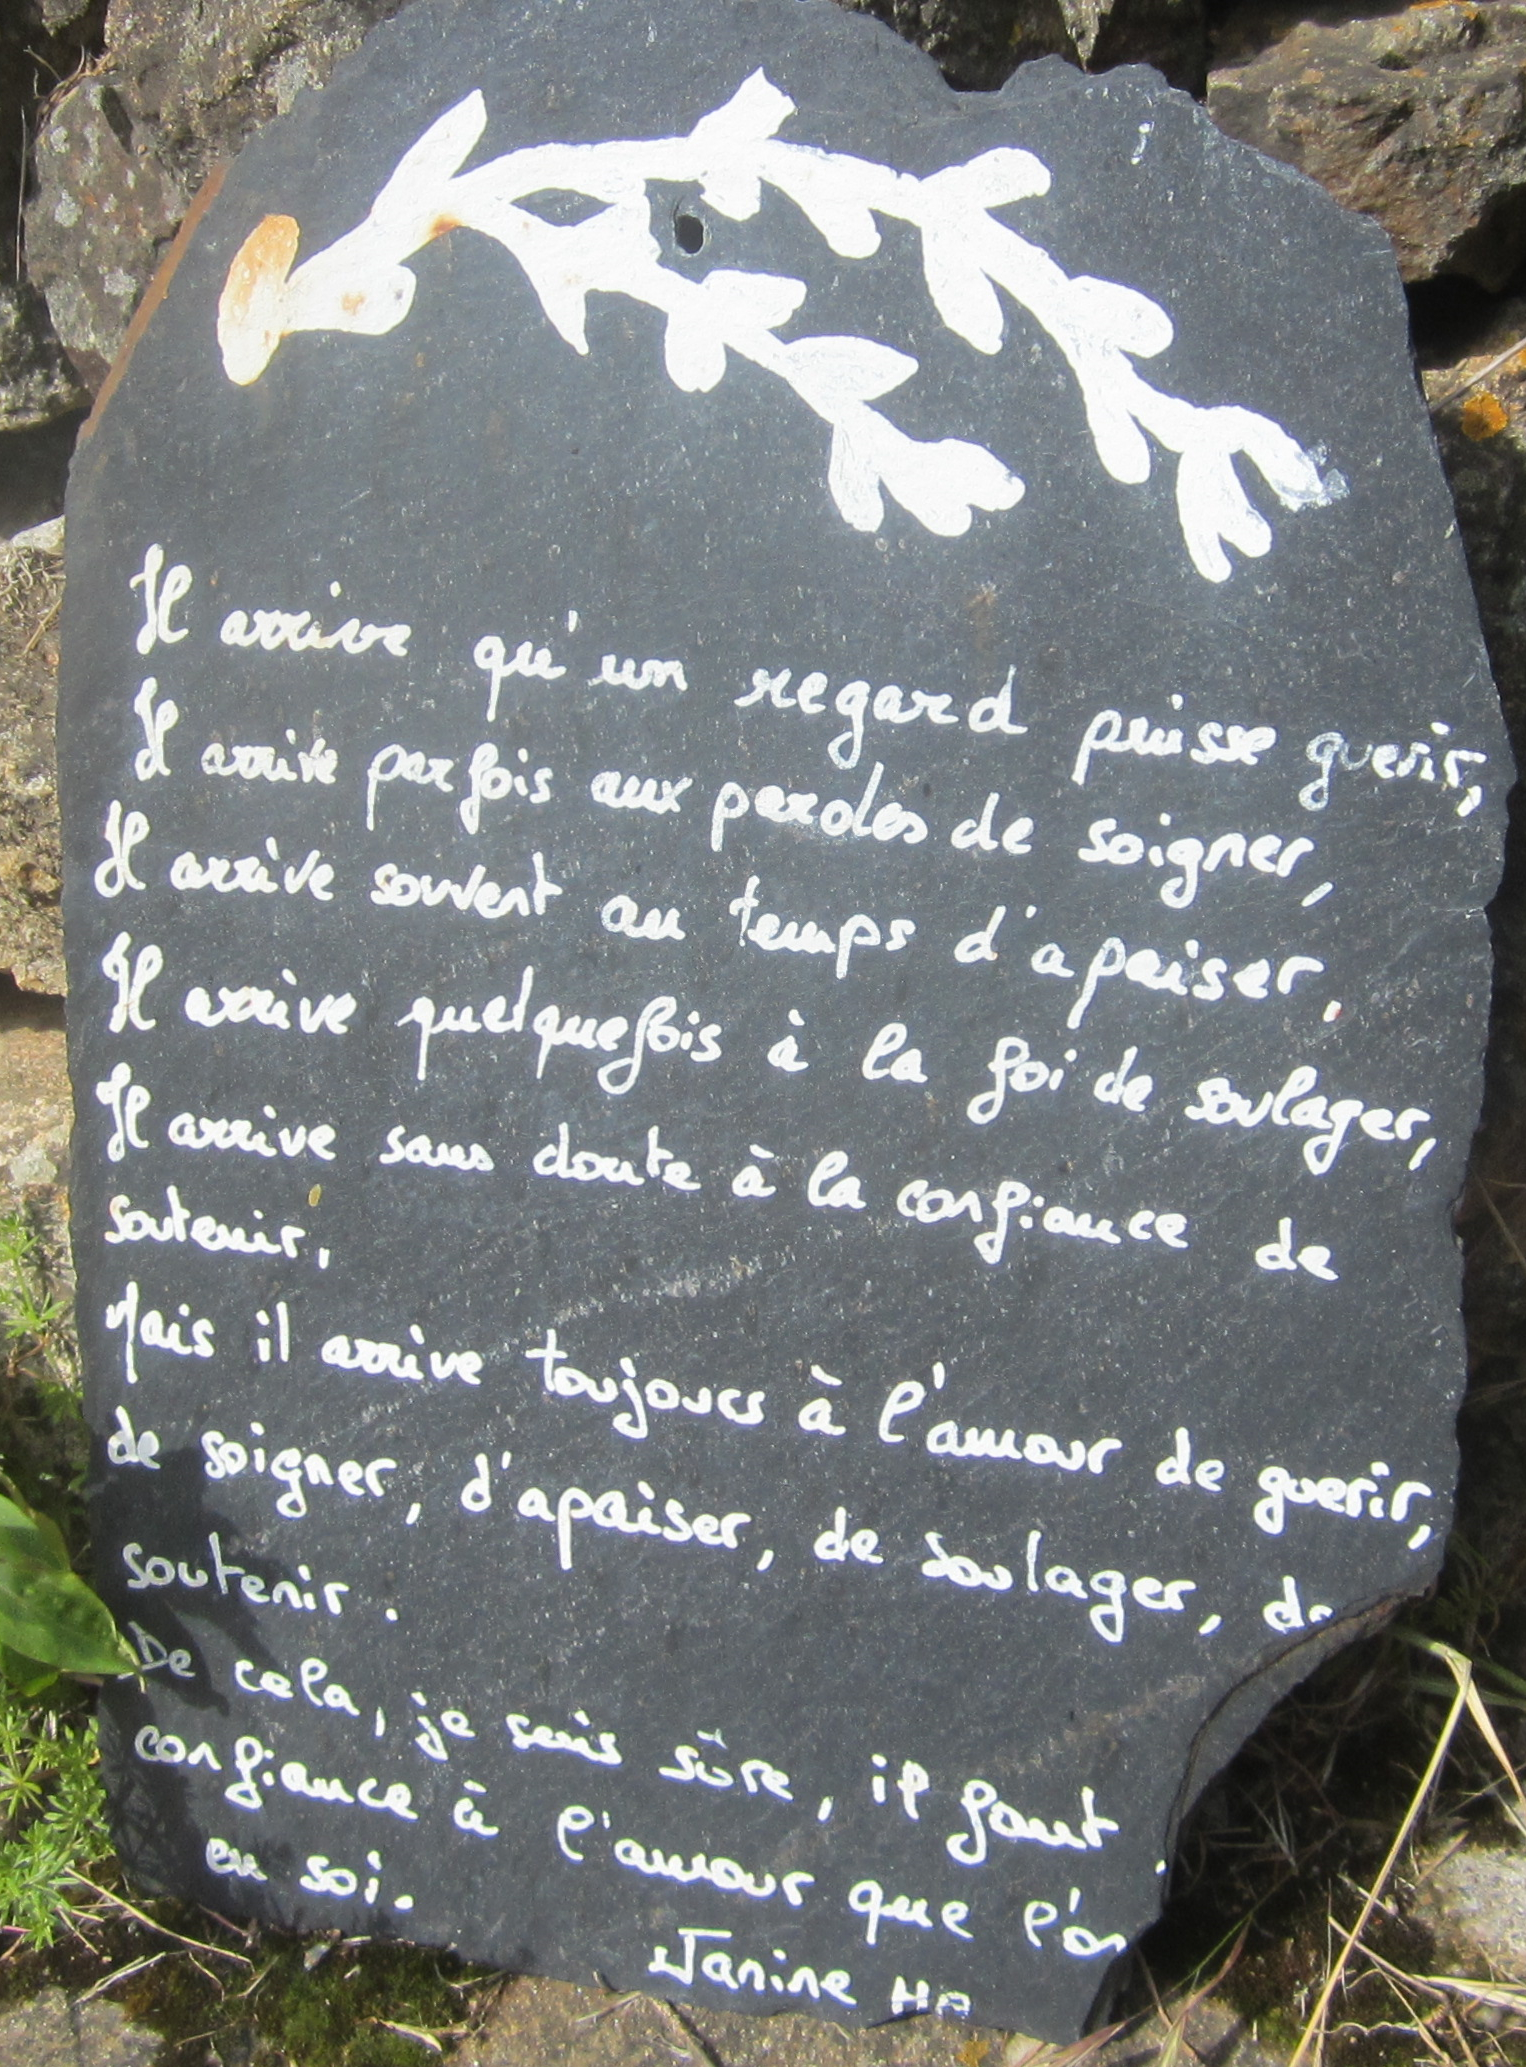 Il arrive qu'un regard puisse guerir,
Il arrive parfois aux paroles de soigner,
Il arrive souvent au temps d'apaiser,
Il arrive quelquefois à la foi de soulager,
Il arrive sans doute à la confiance de
soutenir,
Mais il arrive toujours à l'amour de guerir,
de soigner, d'apaiser, de soulager, de
soutenir.
De cela, je suis sûre, il faut
confiance à l'amour que l'on
en soi.
Janine